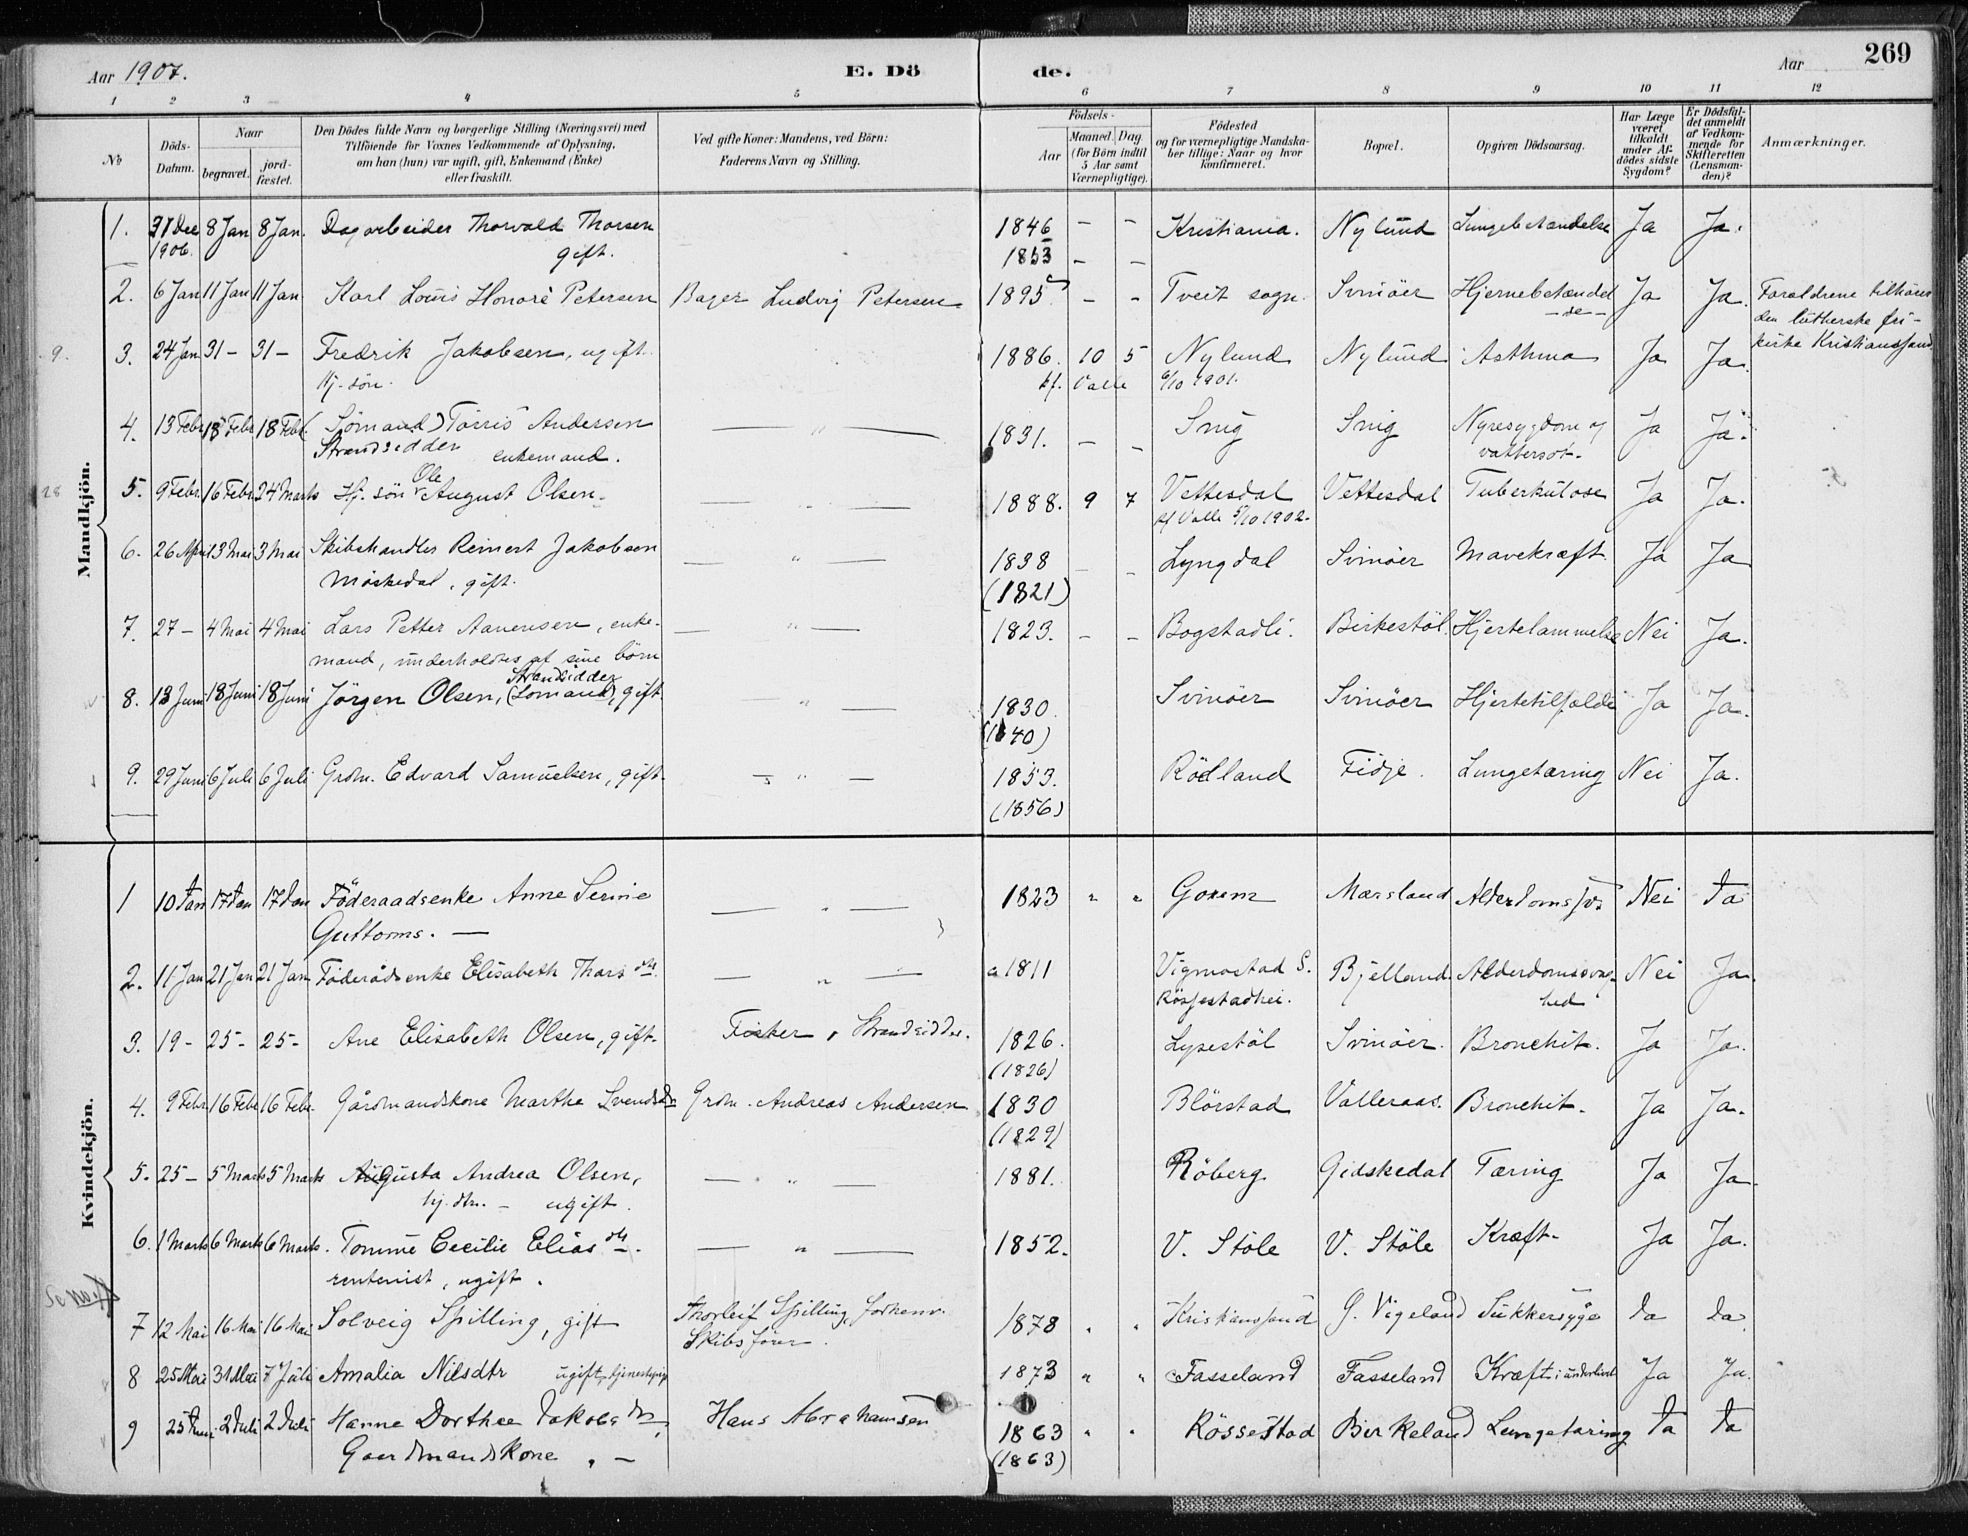 Aar 1907.
E. Dö
de.
Aar
269
1 2 3 4 5 6 7 8 9 10 11 12
№
Döds-
Datum.
Naar
begravet.
jord-
fæstet.
Den Dödes fulde Navn og borgerlige Stilling (Næringsvei) med
Tilföiende for Voxnes Vedkommende af Oplysning,
om han (hun) var ugift, gift, Enkemand (Enke)
eller fraskilt.
Ved gifte Koner: Mandens, ved Börn:
Faderens Navn og Stilling.
Födsels-
Aar
Maaned.
Dag.
(for Börn indtil
5 Aar samt
Værnepligtige).
Födested
og for værnepligtige Mandska-
ber tillige: Naar og hvor
konfirmeret.
Bopæl.
Opgiven Dödsaarsag.
Har Læge
været
tilkaldt
under Af-
dödes sidste
Sygdom?
Er Dödsfal-
det anmeldt
af Vedkom-
mende for
Skifteretten
(Lensman-
den)?
Anmærkninger.
Mandkjön.
1. 31 Dec 8 Jan 8 Jan. Dagarbeider Thorvald Thorsen 1846 – – Kristiania. Nylund Lungebetændelse Ja Ja.
1906. gift. 1853 – –
2. 6 Jan 11 Jan 11 Jan Karl Louis Honorè Petersen Bager Ludvig Petersen 1895 – – Tveit sogn. Svinöer Hjernebetændel Ja Ja. Forældrene tilhörer
– de – den lutherske fri-
kirke Kristianssand
9. 3. 24 Jan 31 – 31 – Fredrik Jakobsen, ugift. 1886. 10 5 Nylund Nylund Asthma Ja Ja.
Hj. sön. kf. Valle 6/10 1901.
4. 13 Febr 18 Febr 18 Febr. (Sömand) Törris Andersen – " – 1831. – – Snig Snig Nyresygdom og Ja Ja.
Strandsidder enkemand. vattersot.
Ole
28 5. 9 Febr. 16 Febr 24 Marts Hj. sön August Olsen. – " – 1888. 9 7 Vettesdal Vettesdal Tuberkulose Ja Ja.
kf Valle 5/10 1902.
6. 26 April 3 Mai 3 Mai Skibshandler Reinert Jakobsen – " – 1838 – – Lyngdal Svinöer Mavekræft Ja Ja
Möskedal, gift. (1821)
7. 27 – 4 Mai 4 Mai Lars Petter Aanensen, enke- – " – 1823. – – Bogstadli. Birkestöl. Hjertelammelse Nei Ja.
mand, underholdes af sine börn
Strandsidder
8. 13 Juni 18 Juni 18 Juni Jörgen Olsen, (Lomand), gift – " – 1830 Svinöer Svinöer Hjertetilfælde Ja Ja.
(1840)
9. 29 Juni 6 Juli 6 Juli Grdm. Edvard Samuelsen, gift. – " – 1853. Rödland Fidje. Lungetæring Nei Ja.
(1856)
Kvindekjön.
1 10 Jan 17 Jan 17 Jan Föderaadsenke Anne Serine – " – 1823 " " Marsland Nei Ja
Guttorms. –
2. 11 Jan 21 Jan 21 Jan Föderådsenke Elisabeth Thors dtr. – " – 1811 Vigmostad S. Bjelland. Alderdomssvag- Nei Ja.
hed
3. 19 – 25 – 25 – Ane Elisabeth Olsen, gift. Fisker, Strandsidder. 1826. Lysestöl Svinöer. Bronchit. Ja Ja.
(1826)
4. 9 Febr. 16 Febr 16 Febr. Gårdmandskone Marthe Svendsdtr Grdm. Andreas Andersen 1830 Blörstad Valleraas. Bronchit. Ja Ja.
(1829)
5. 25 – 5 Marts 5 Marts Augusta Andrea Olsen, – " – 1881. Röberg Gidskedal Tæring Ja Ja.
hj. dtr. – ugift.
6. 1 Marts 6 Marts 6 Marts. Tomine Cecilie Elias dtr. – " – 1852. V. Stöle V. Stöle Kræft. Ja Ja.
rentenist, ugift.
7 12 Mai 16 Mai 16 Mai Solveig Spilling, gift Thorleif Spilling, forhenv. 1878 " " Kristianssand G. Vigeland Sukkersyge Ja Ja.
Skibsförer.
8 25 Mai 31 Mai 7 Juli Amalia Nilsdtr ugift, tjenestepige 1873 " " Fasseland Fasseland Kræft i underlivet Ja Ja.
9 25 Juni 2 Juli 2 Juli Hanne Dorthee Jakobsdtr, Hans Abrahamsen 1863 " " Rössestad Birkeland Lungetæring Ja Ja
Gaardmandskone. – (1863)